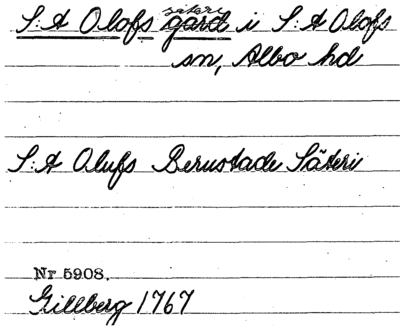 säteri
S:t Olofs gård i S:t Olofs
sn, Albo hd
S:t Olufs Berustade Säteri
Nr 5908.
Gillberg 1767